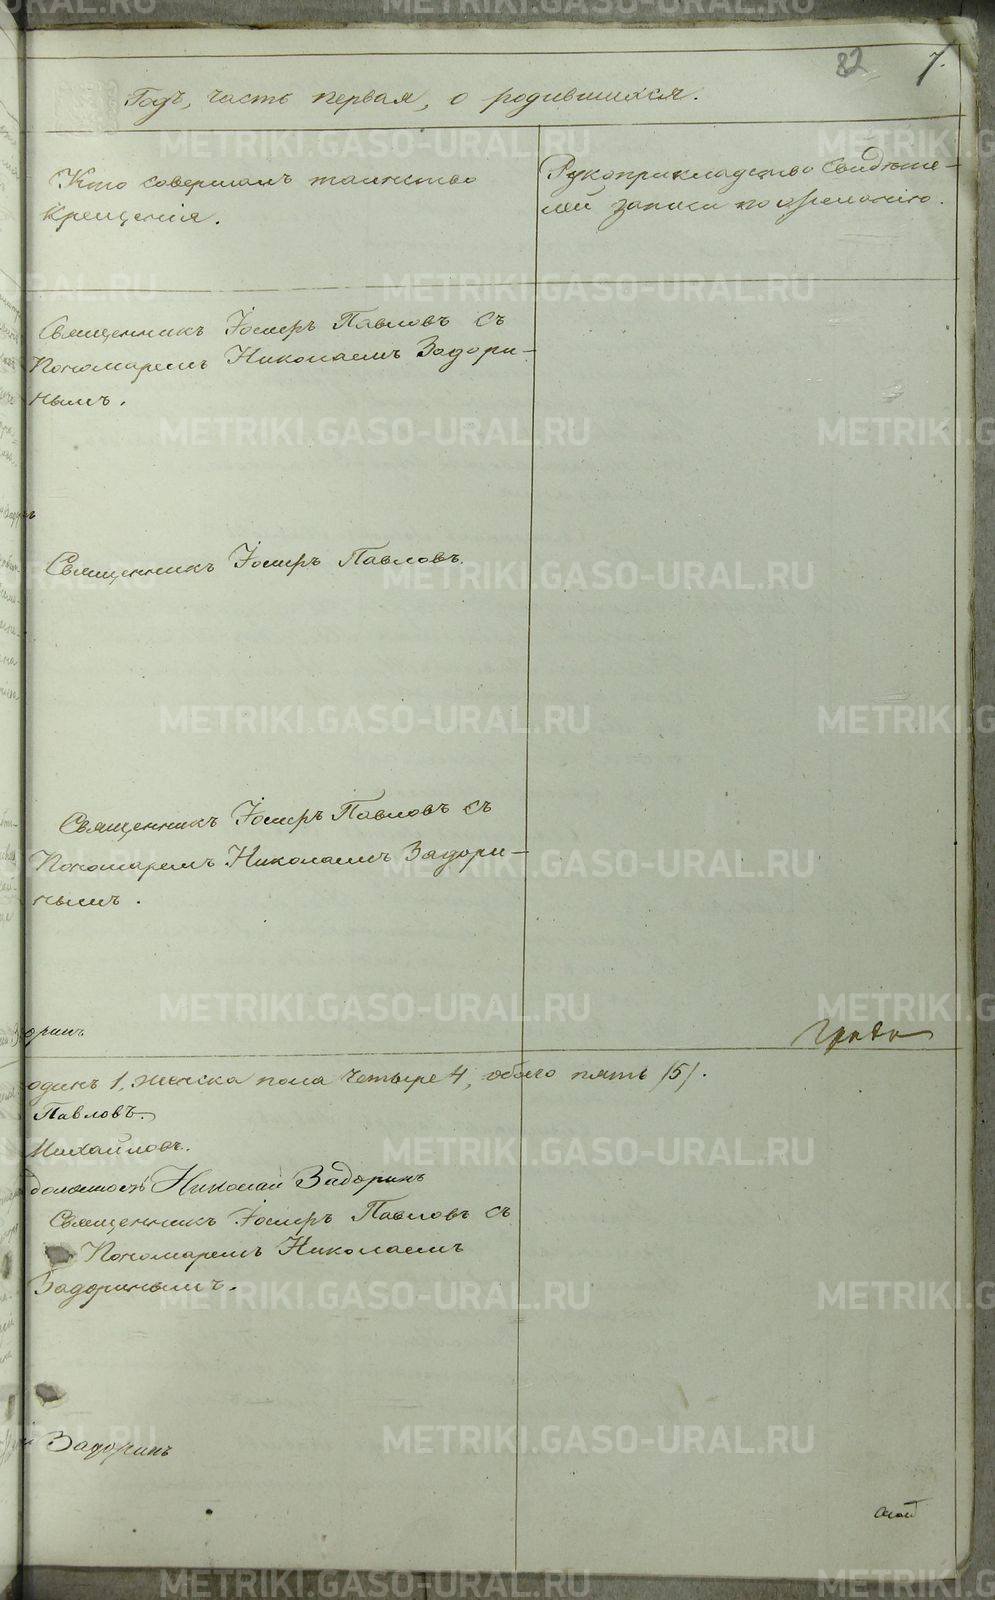 82 7.
Годъ, часть первая, о родившихся.
Кто совершалъ таинство
крещенія.
Рукоприкладство свидѣте-
лей записи по желанію.
Священникъ Іосифъ Павловъ съ
Пономаремъ Николаемъ Задори-
нымъ.
Священникъ Іосифъ Павловъ.
Священникъ Іосифъ Павловъ съ
Пономаремъ Николаемъ Задори-
нымъ.
оринъ
одинъ 1, женска пола четыре 4, обоего пять /5/.
Павловъ.
Михайловъ.
должность Николай Задоринъ
Священникъ Іосифъ Павловъ съ
Пономаремъ Николаемъ
Задоринымъ.
й Задоринъ
METRIKI.GASO-URAL.RU